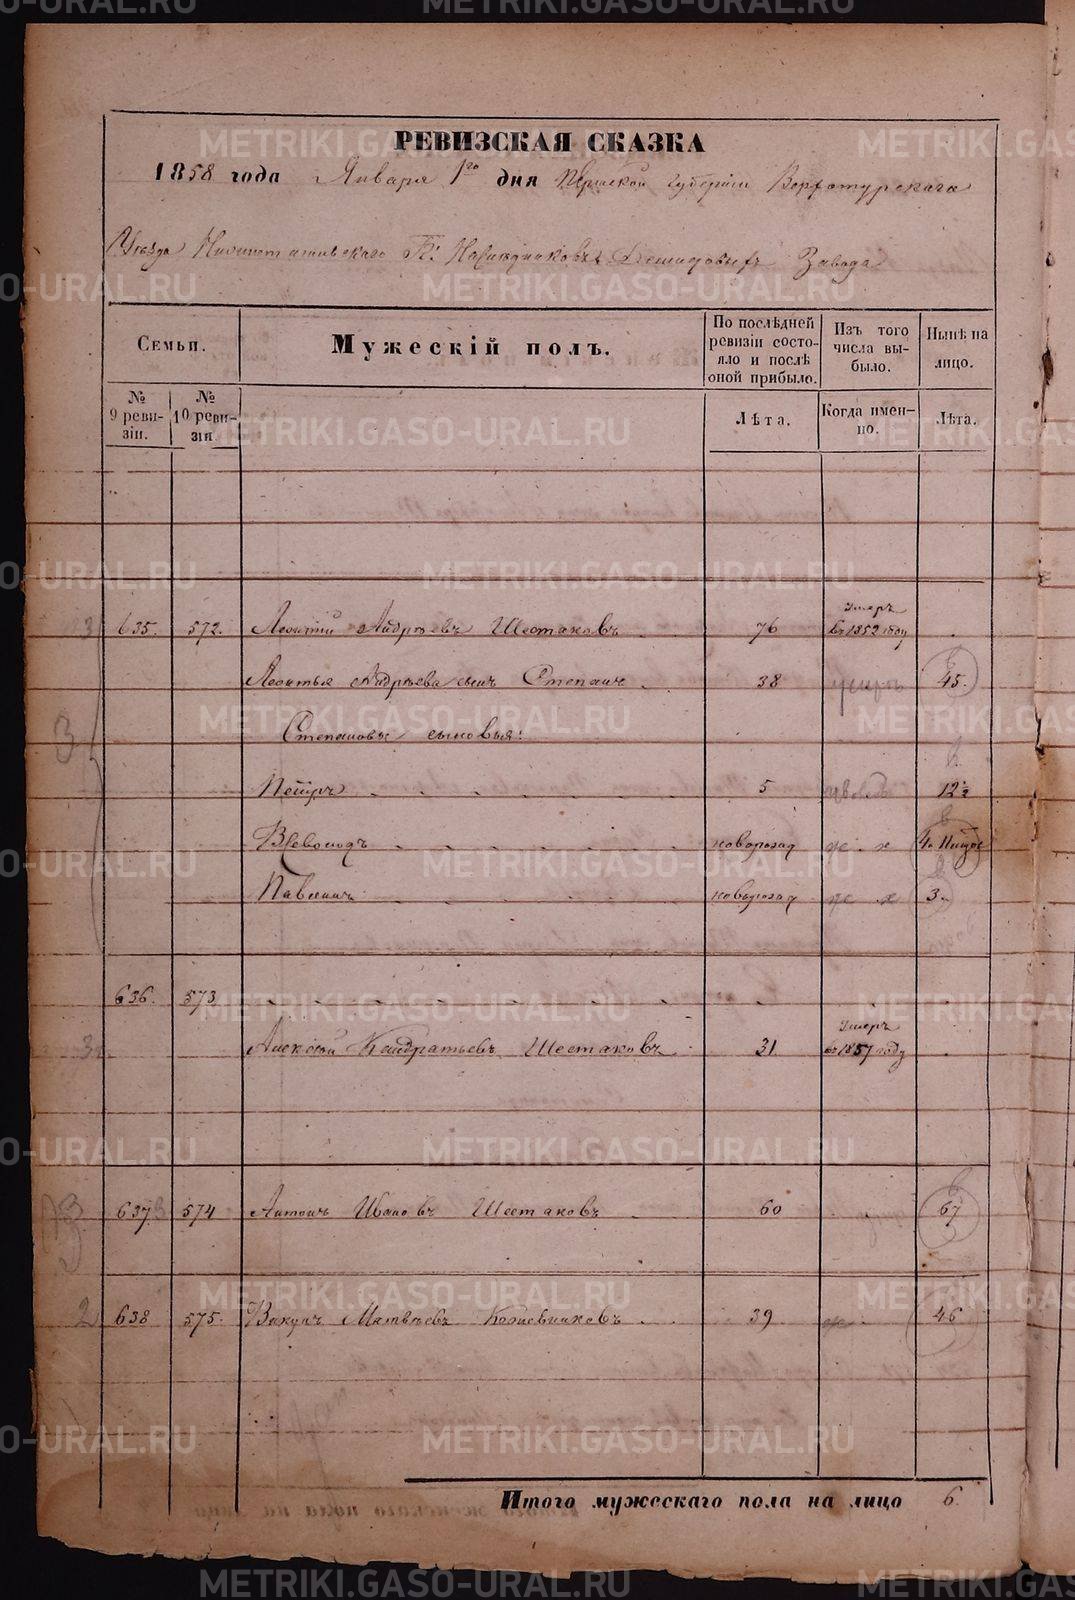 РЕВИЗСКАЯ СКАЗКА
1858 года Января 1го дня Пермской губернiи Верхотурскаго
Уѣзда Г: Наслѣдниковъ Демидовыхъ Завода
Семьи.
Мужескiй полъ.
По послѣдней ревизiи состояло и послѣ оной прибыло.
Изъ того числа выбыло.
Нынѣ на лицо.
№ 9 ревизiи.
№ 10 ревизiи.
Лѣта.
Когда именно.
Лѣта.
635. 572. Леонтiй Андрѣевъ Шестаковъ 76 Умеръ въ 1852 году
Леонтья Андрѣева сынъ Степанъ 38 умеръ 45.
Степановы сыновья:
Петръ 5 12½
Всеволодъ новорожд
новорожд 3.
636. 573
3 Алексѣй Кондратьевъ Шестаковъ 31 Умеръ въ 1857 году
637 574 Антонъ Ивановъ Шестаковъ 60 67
2 638 575. Вакулъ Матвѣевъ Кожевниковъ 39 46
Итого мужескаго пола на лицо 6.
METRIKI.GASO-URAL.RU